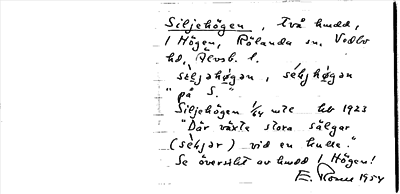 Siljehögen, två hmdd,
1 Högen, Rölanda sn. Vedbo
hd, Älvsb. l.
"på S."
Siljehögen 1/64 mtl Jeb 1923
"Där växte stora sälgar
vid en kulle."
Se översikt av hmdd 1 Högen!
E. 1954